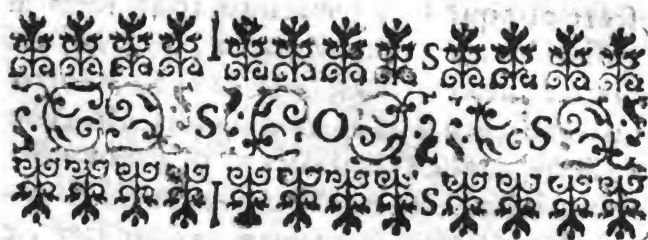 I S
S O S
I S